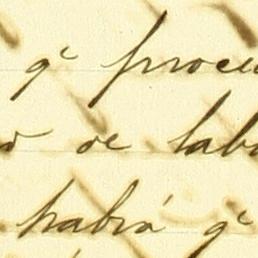 qe procu
o de lab
habrá qe